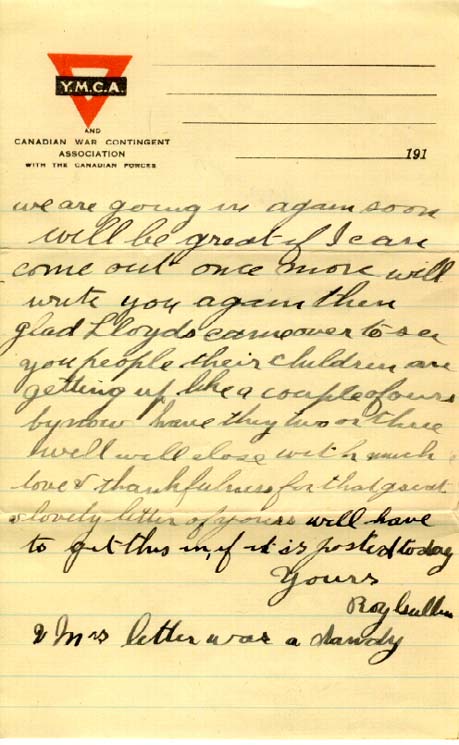 Y.M.C.A.
AND
CANADIAN WAR CONTINGENT
ASSOCIATION
WITH THE CANADIAN FORCES
191
we are going in again soon
will be great if I can
come out once more will
write you again then
glad Lloyds came over to see
you people their children are
getting up like a couple of ours
by now have they two or three
well will close with much
love & thankfulness for that great
& lovely letter of yours will have
to get this in, if it is posted today
Yours
Roy
& Mrs letter was a dandy